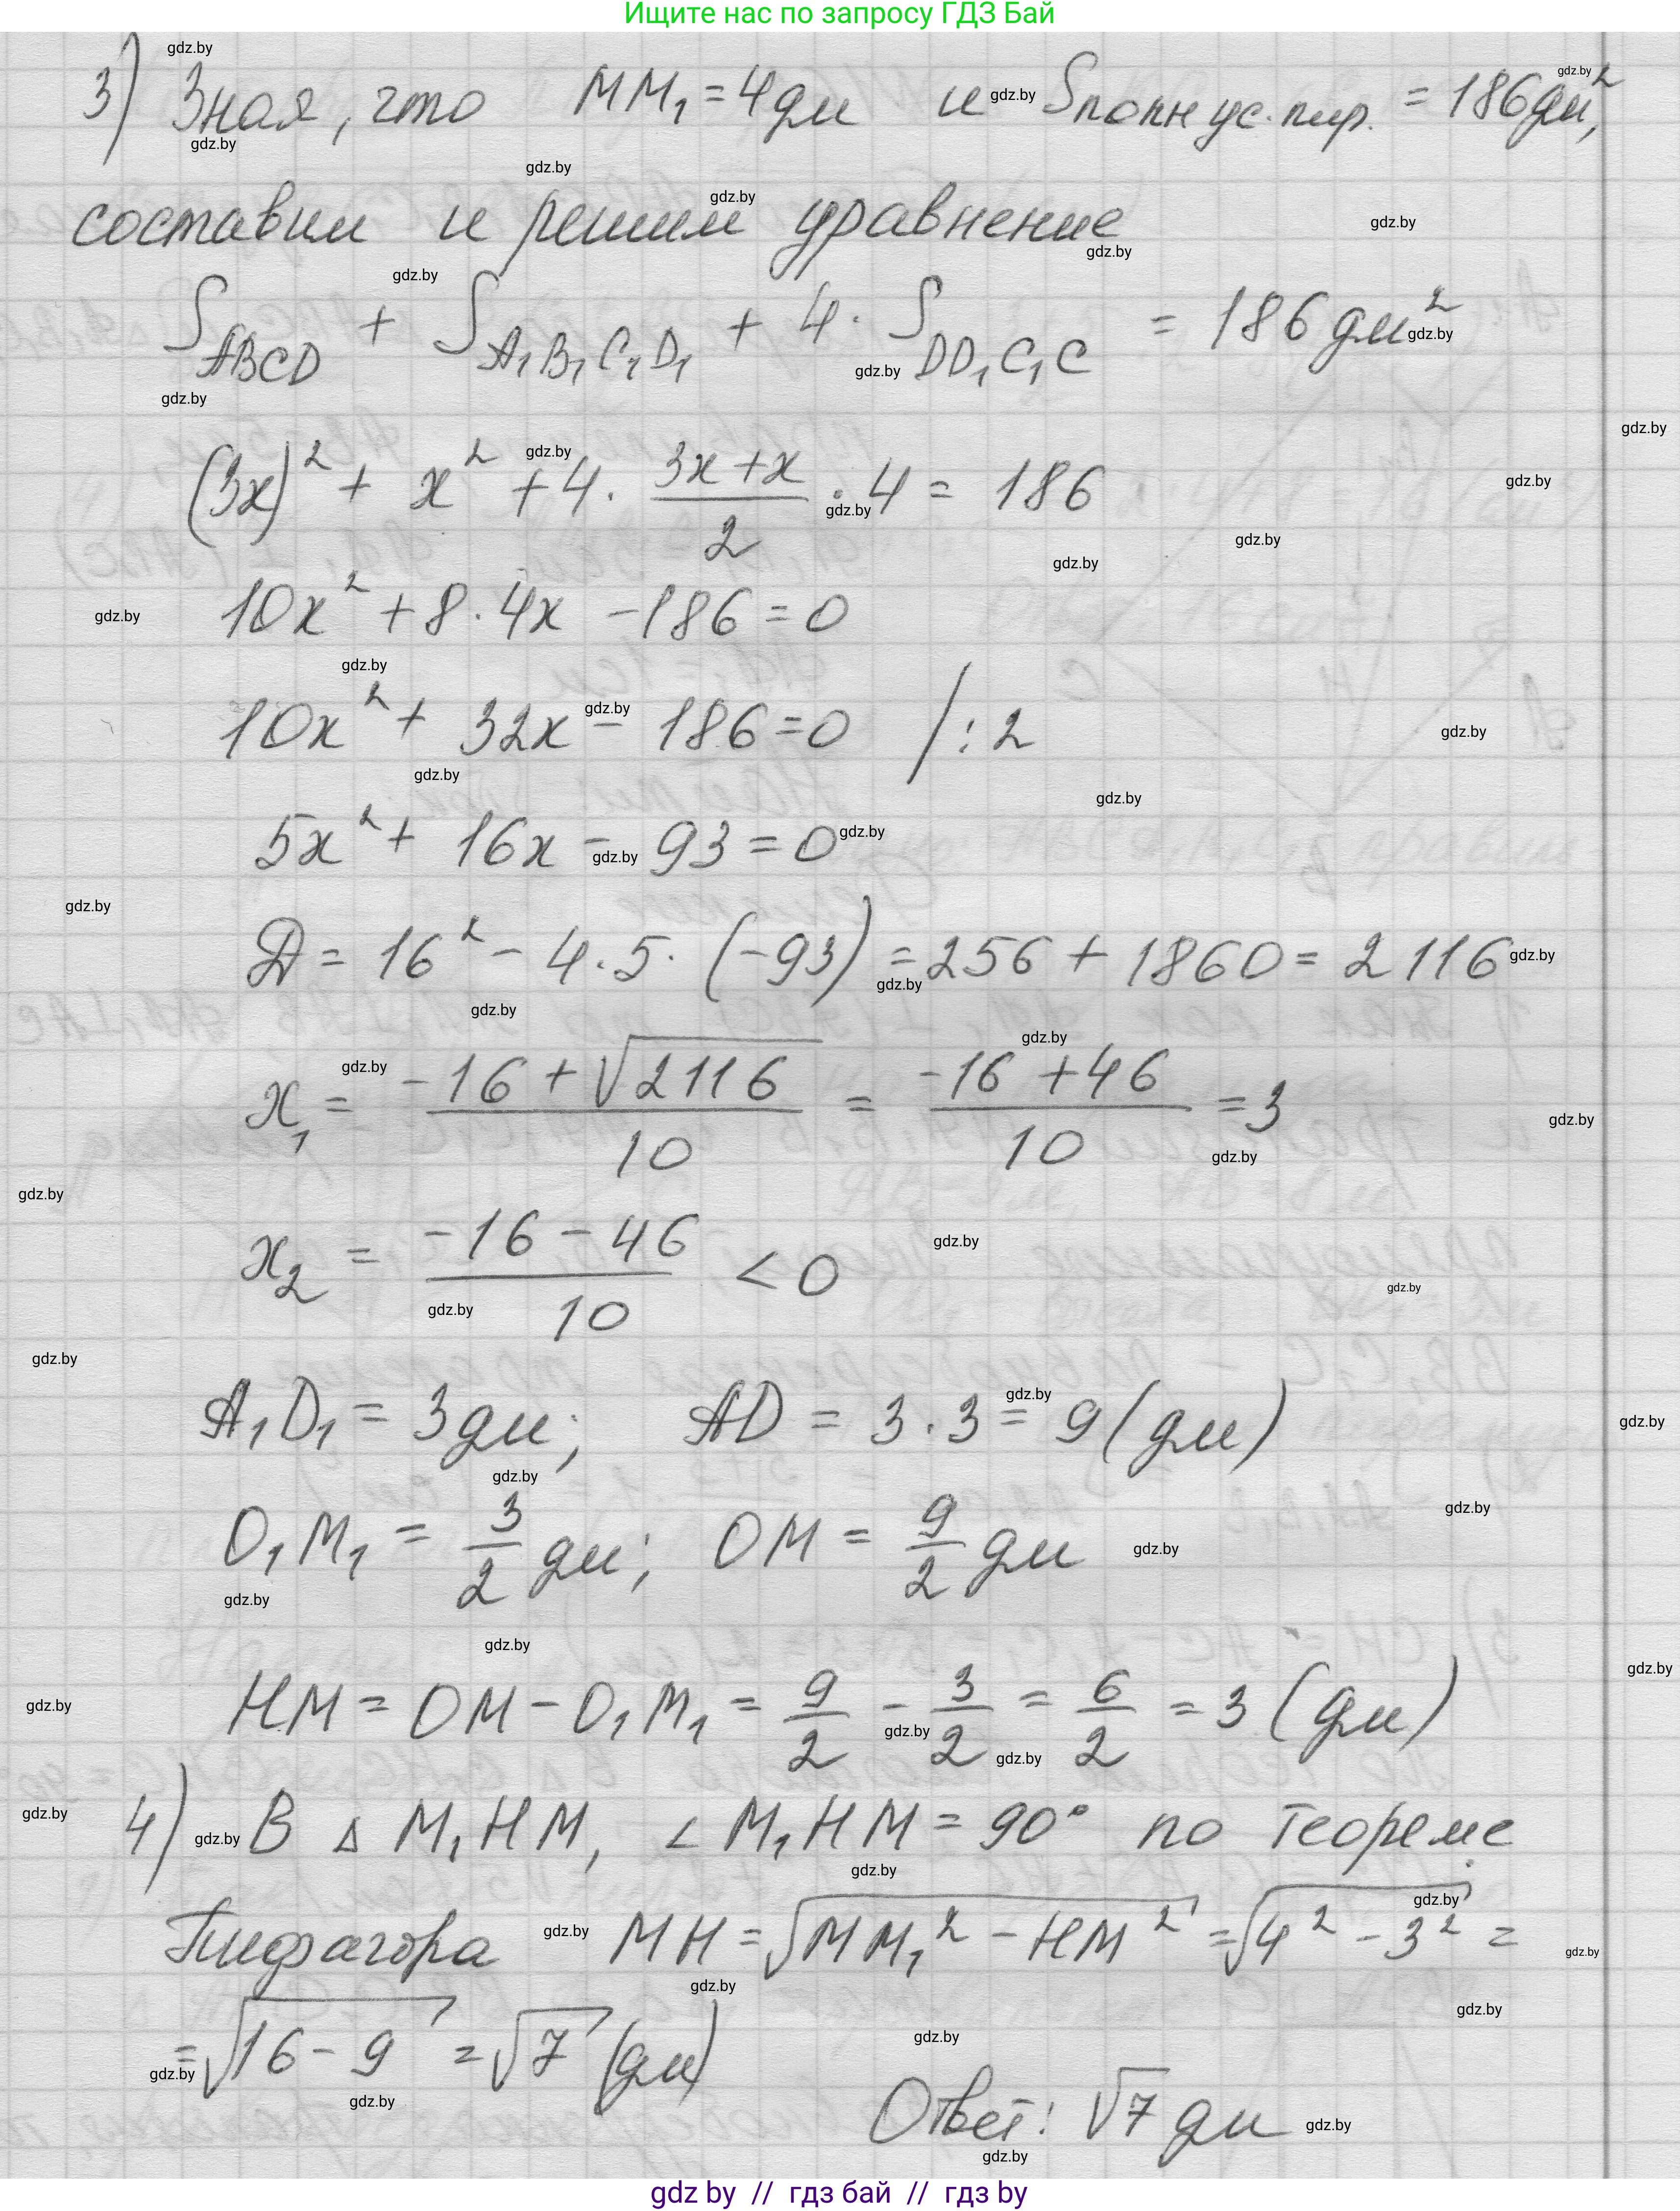 Ищите нас по запросу ГДЗ Бай
3) Зная, что MM₁ = 4 дм и Sполн ус. пир. = 186 дм²,
составим и решим уравнение
S_ABCD + S_A₁B₁C₁D₁ + 4 · S_DD₁C₁C = 186 дм²
(3x)² + x² + 4 · (3x + x)/2 · 4 = 186
10x² + 8 · 4x − 186 = 0
10x² + 32x − 186 = 0 / : 2
5x² + 16x − 93 = 0
D = 16² − 4 · 5 · (−93) = 256 + 1860 = 2116
x₁ = (−16 + √2116)/10 = (−16 + 46)/10 = 3
x₂ = (−16 − 46)/10 < 0
A₁D₁ = 3 дм; AD = 3 · 3 = 9 (дм)
O₁M₁ = 3/2 дм; OM = 9/2 дм
HM = OM − O₁M₁ = 9/2 − 3/2 = 6/2 = 3 (дм)
4) В △ M₁HM, ∠ M₁HM = 90° по теореме
Пифагора MH = √(MM₁² − HM²) = √(4² − 3²) =
= √(16 − 9) = √7 (дм)
Ответ: √7 дм
gdz by // гдз бай // гдз by